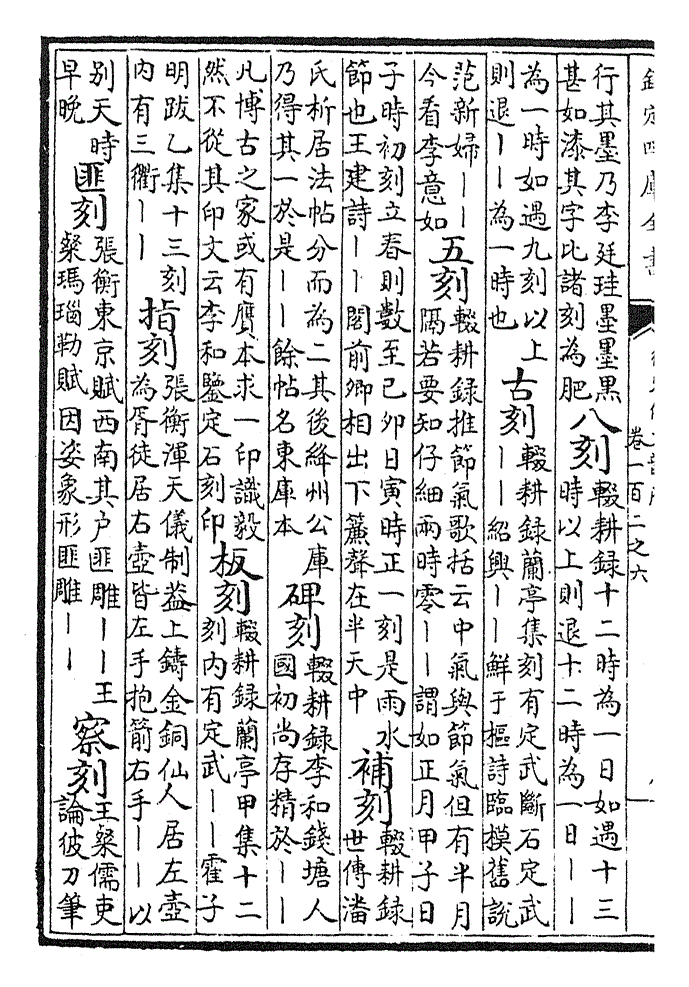 欽定四庫全書
卷一百二之六
行其墨乃李廷珪墨墨黑
甚如漆其字比諸刻為肥
八刻
輟耕録十二時為一日如遇十三
時以上則退十二時為一日——
為一時如遇九刻以上
則退——為一時也
古刻
輟耕録蘭亭集刻有定武斷石定武
——紹興——鮮于樞詩臨模舊説
范新婦——
今看李意如
五刻
輟耕録推節氣歌括云中氣與節氣但有半月
隔若要知仔細兩時零——謂如正月甲子日
子時初刻立春則數至己卯日寅時正一刻是雨水
節也王建詩——閤前卿相出下簾聲在半天中
補刻
輟耕録
世傳潘
氏析居法帖分而為二其後絳州公庫
乃得其一於是——餘帖名東庫本
碑刻
輟耕録李和錢塘人
國初尚存精於——
凡博古之家或有贋本求一印識毅
然不從其印文云李和鑒定石刻印
板刻
輟耕録蘭亭甲集十二
刻内有定武——霍子
明跋乙集十三刻
内有三衢——
指刻
張衡渾天儀制葢上鑄金銅仙人居左壺
為胥徒居右壺皆左手抱箭右手——以
别天時
早晩
匪刻
張衡東京賦西南其户匪雕——王
粲瑪瑙勒賦因姿象形匪雕——
察刻
王粲儒吏
論彼刀筆